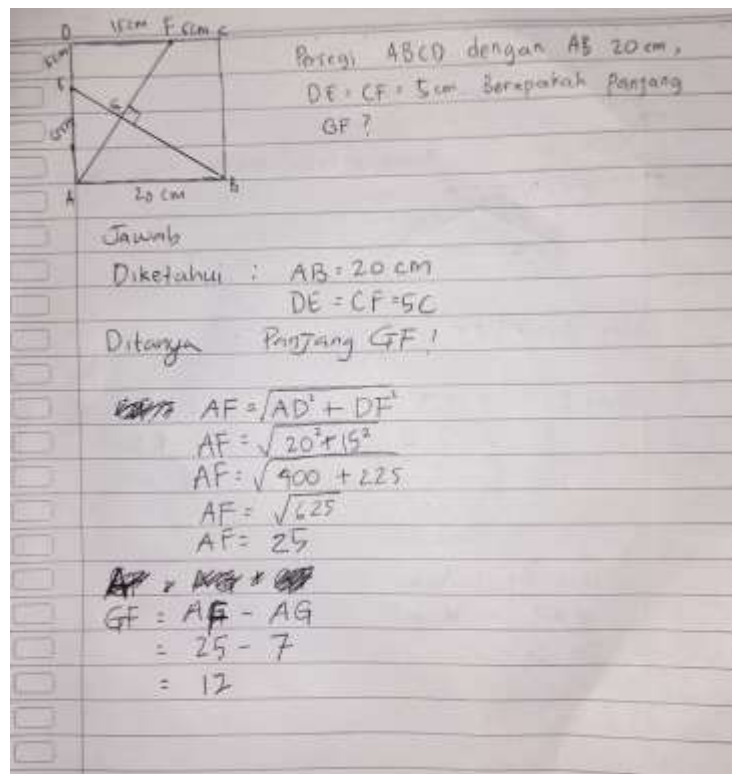 D 15cm F 5cm C
5cm
E
G
15cm
A 20 cm B
Persegi ABCD dengan AB 20 cm,
DE = CF = 5 cm Berapakah Panjang
GF ?
Jawab
Diketahui : AB = 20 cm
DE = CF = 5C
Ditanya Panjang GF !
AF = √AD² + DF²
AF = √20² + 15²
AF = √400 + 225
AF = √625
AF = 25
GF = AF - AG
= 25 - 7
= 12